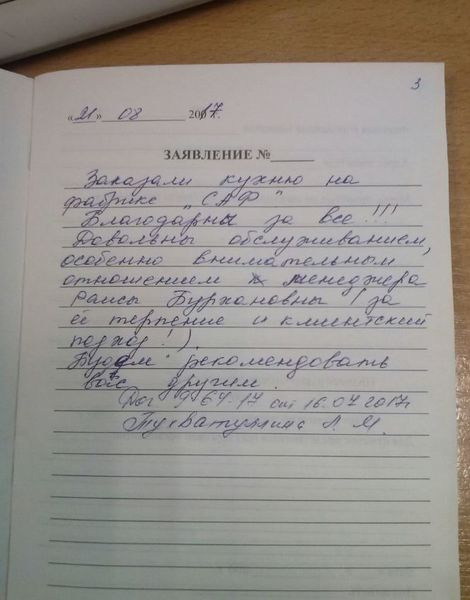 3
«21» 08 2017г.
ЗАЯВЛЕНИЕ №
Заказали кухню на
фабрике "САФ"
Благодарны за все!!!
Довольны обслуживанием,
особенно внимательным
отношением менеджера
Раисы Бурхановны (за
её терпение и клиентский
подход!).
Будем рекомендовать
вас другим.
Дог 967-17 от 16.07.2017г
Л М.